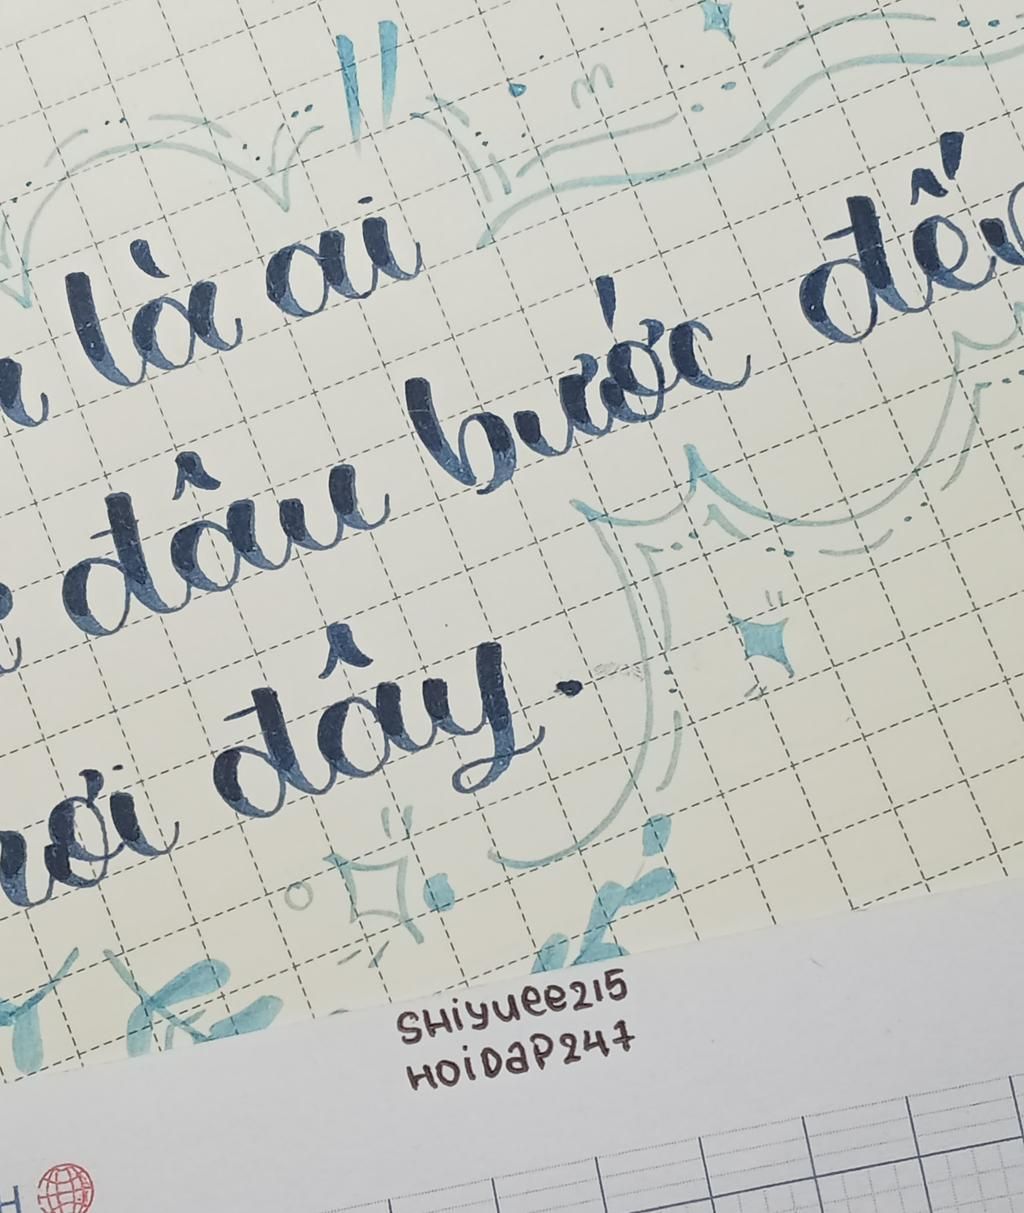 là ai
đâu bước đến
đây.
SHiyuee215
HOiDaP247